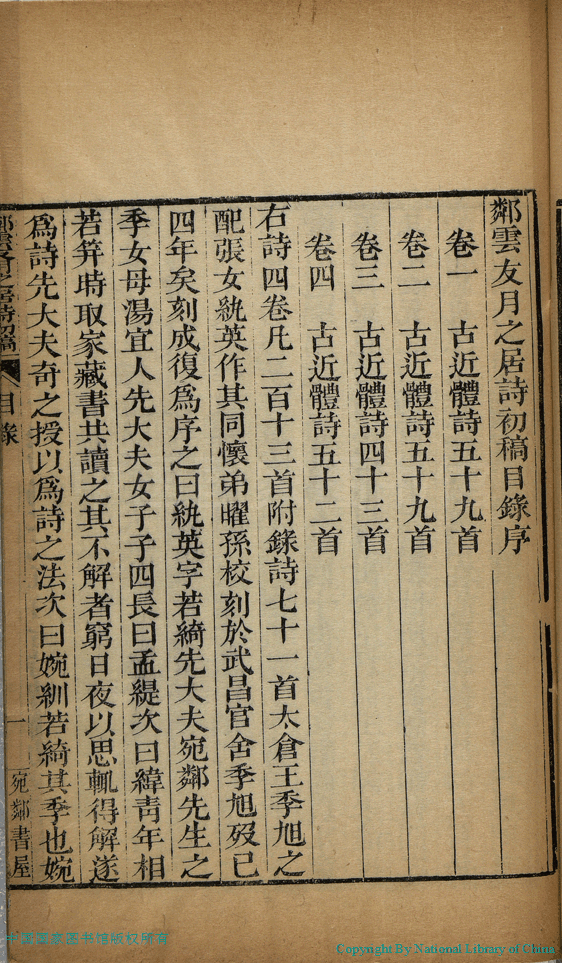 鄰雲友月之居詩初稿目錄序
卷一　古近體詩五十九首
卷二　古近體詩五十九首
卷三　古近體詩四十三首
卷四　古近體詩五十二首
右詩四卷凡二百十三首附錄詩七十一首太倉王季旭之
配張女紈英作其同懷弟曜孫校刻於武昌官舍季旭歿已
四年矣刻成復爲序之曰紈英字若綺先大夫宛鄰先生之
季女母湯宜人先大夫女子子四長曰孟緹次曰緯青年相
若笄時取家藏書共讀之其不解者窮日夜以思輒得解遂
爲詩先大夫奇之授以爲詩之法次曰婉紃若綺其季也婉
鄰雲友月之居詩初稿　目錄　一　宛鄰書屋
中国国家图书馆版权所有
Copyright By National Library of China